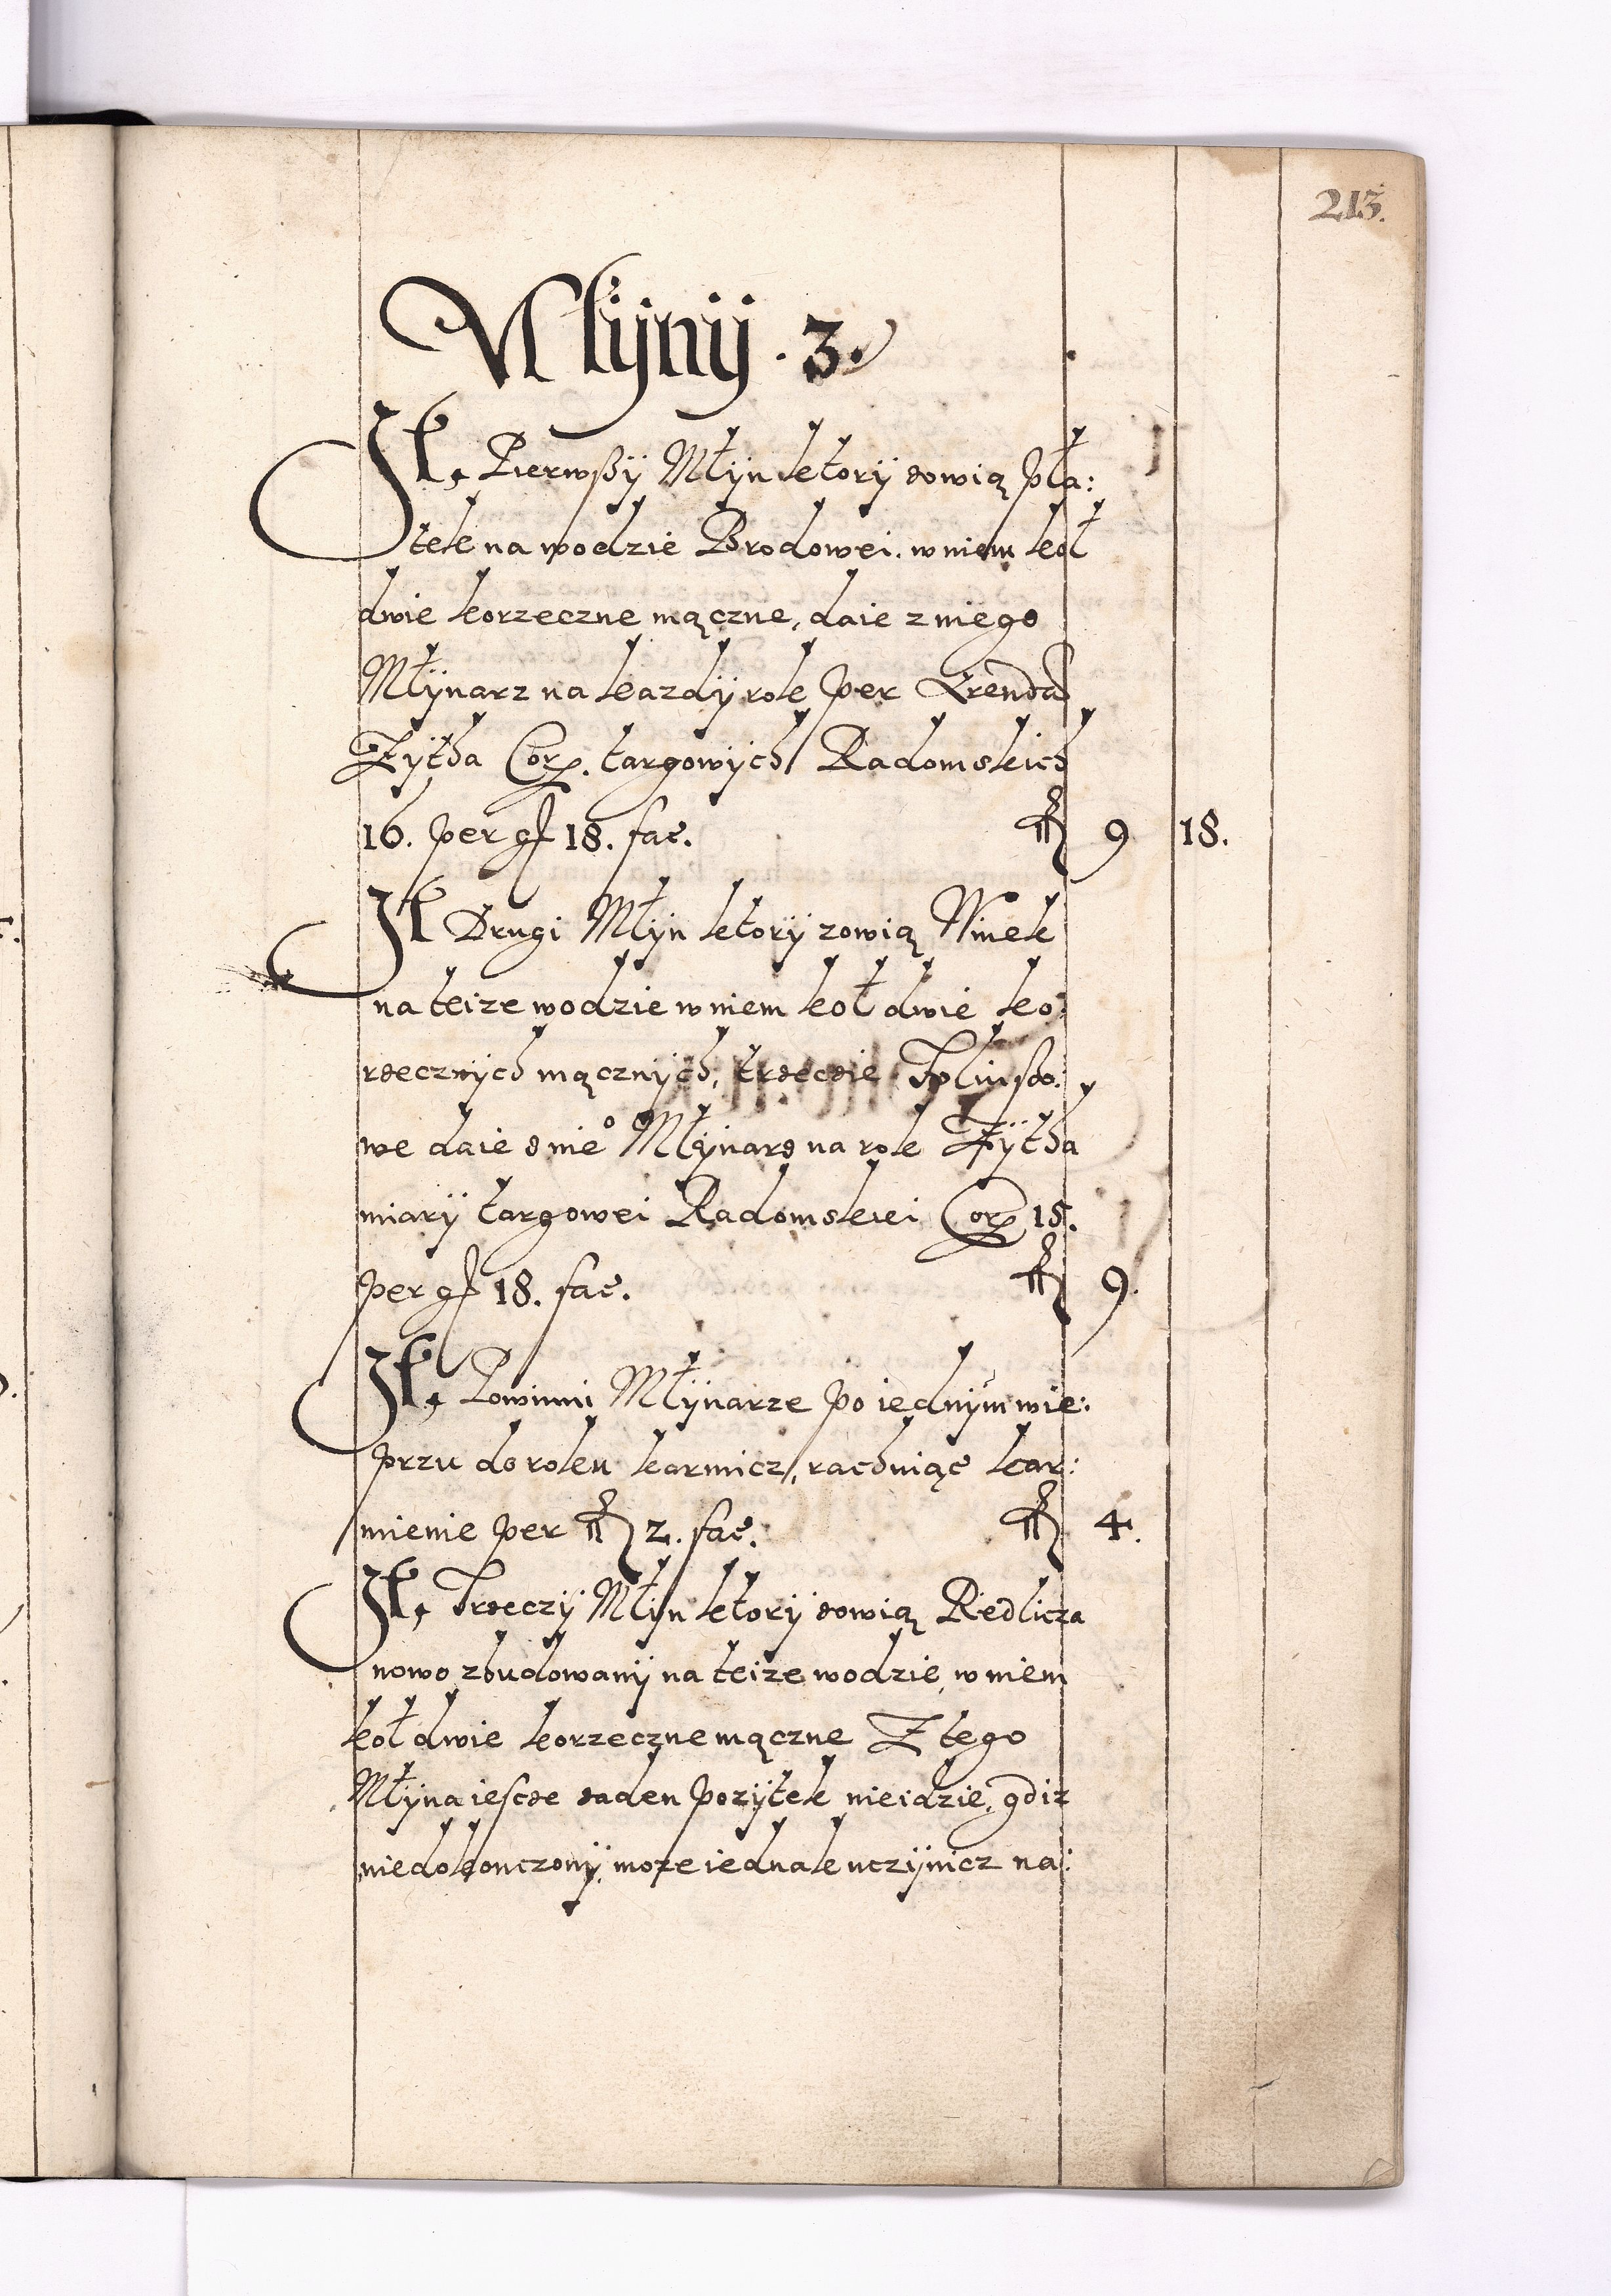 213.
Młÿnÿ . 3.
It, Pierwßÿ Młÿn ktorÿ zowią pła:
tek na wodzie Brodowei. w niem koł
dwie korzeczne mączne, daie z niego
Młÿnarz na kazdÿ rok per Arendã
Zÿtha Corᵱ. targowÿch Radomskich
16. per gſ 18. fac. fl 9 18.
It Drugi Młÿn ktorÿ zowią Wnek
na teize wodzie w niem koł dwie ko:
rzecznÿch mącznÿch, trzecie Stliusto:
we daie z nieº Młÿnarz na rok Zÿtha
miarÿ targowei Radomskiei Corᵱ 15.
per gſ 18. fac. fl 9.
It, Powinni Młÿnarze po iednÿm wie:
przu do roku karmicz, rachuiąc kar:
mienie per fl 2. fac. fl 4.
It, Trzeczÿ Młÿn ktorÿ zowią Riedlicza
nowo zbudowanÿ na teize wodzie, w niem
koł dwie korzeczne mączne Z tego
Młÿna iescze zaden pozÿtek nieidzie, gdiz
niedokonczonÿ, moze iednak uczÿnicz na: